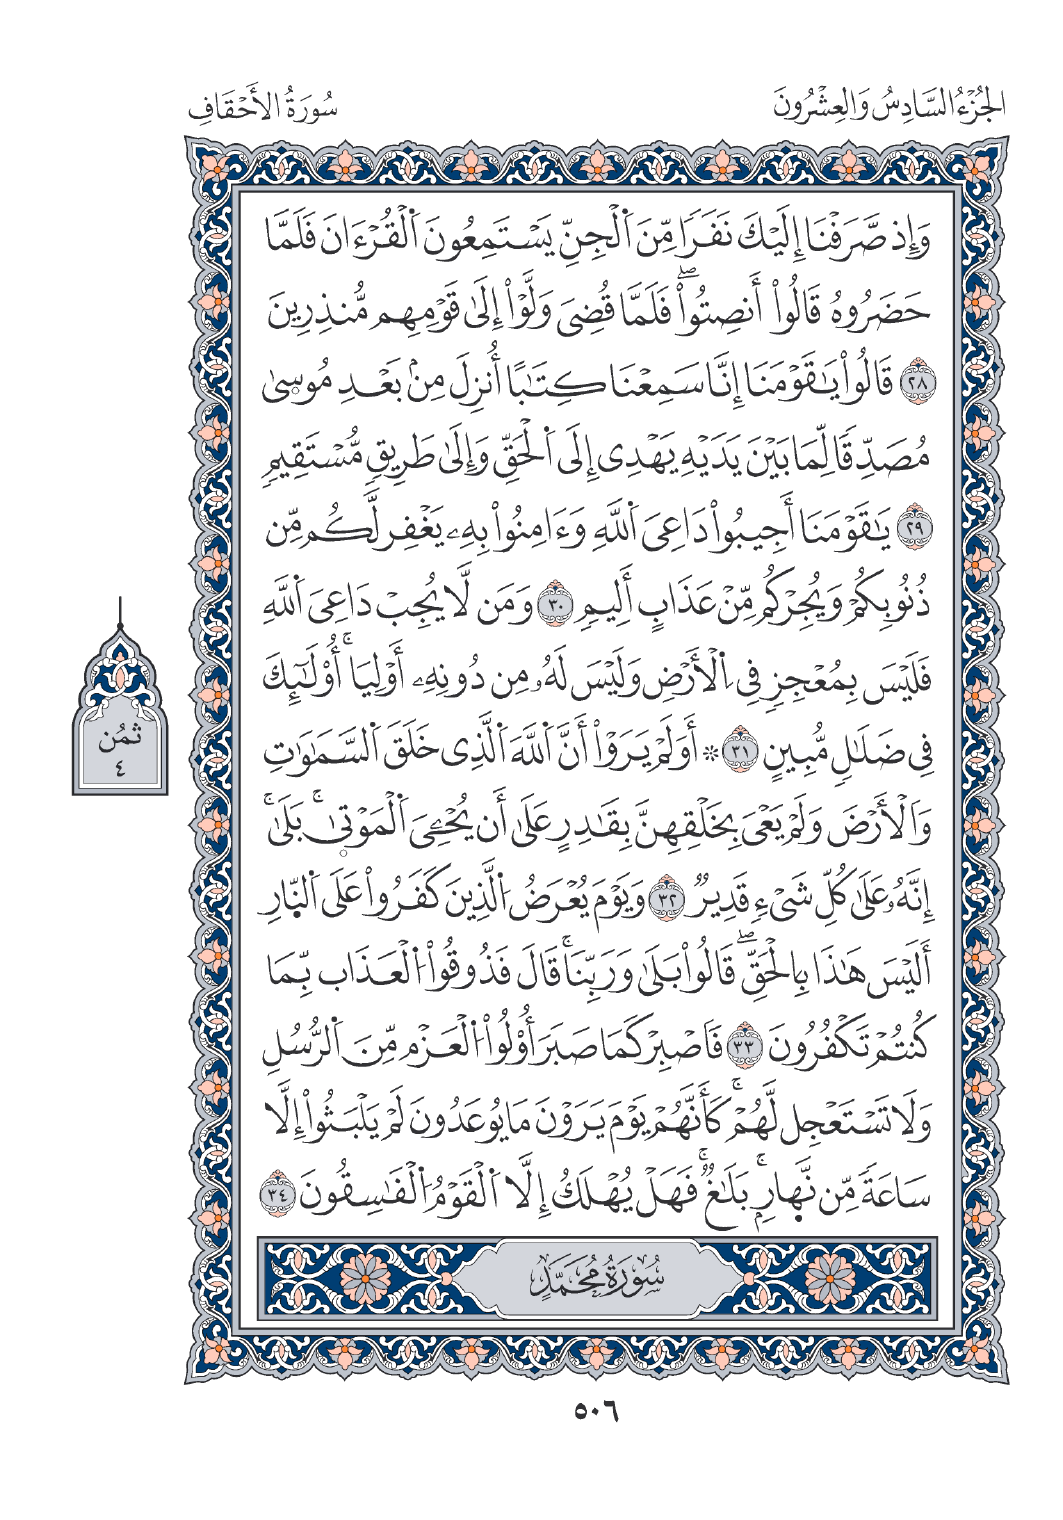 الجُزْءُ السَّادِسُ وَالعِشْرُونَ
سُورَةُ الأَحْقَافِ
وَإِذ صَّرَفْنَا إِلَيْكَ نَفَرًا مِّنَ اَلْجِنِّ يَسْتَمِعُونَ اَلْقُرْءَانَ فَلَمَّا
حَضَرُوهُ قَالُواْ أَنصِتُواْۖ فَلَمَّا قُضِيَ وَلَّوْاْ إِلَىٰ قَوْمِهِم مُّنذِرِينَ
٢٨ قَالُواْ يَٰقَوْمَنَا إِنَّا سَمِعْنَا كِتَٰبًا أُنزِلَ مِنۢ بَعْدِ مُوسۭىٰ
مُصَدِّقًا لِّمَا بَيْنَ يَدَيْهِ يَهْدِي إِلَى اَلْحَقِّ وَإِلَىٰ طَرِيقٍ مُّسْتَقِيمٍ
٢٩ يَٰقَوْمَنَا أَجِيبُواْ دَاعِيَ اَللَّهِ وَءَامِنُواْ بِهِۦ يَغْفِر لَّكُم مِّن
ذُنُوبِكُمْ وَيُجِرْكُم مِّنْ عَذَابٍ أَلِيمٍ ٣٠ وَمَن لَّا يُجِبْ دَاعِيَ اَللَّهِ
فَلَيْسَ بِمُعْجِزٍ فِي اِلْأَرْضِ وَلَيْسَ لَهُۥ مِن دُونِهِۦ أَوْلِيَآۚ أُوْلَٰٓئِكَ
فِي ضَلَٰلٍ مُّبِينٍ ٣١ * أَوَلَمْ يَرَوْاْ أَنَّ اَللَّهَ اَلَّذِي خَلَقَ اَلسَّمَٰوَٰتِ
وَالْأَرْضَ وَلَمْ يَعْيَ بِخَلْقِهِنَّ بِقَٰدِرٍ عَلَىٰ أَن يُحْـِۧيَ اَلْمَوْتۭىٰۚ بَلَىٰۚ
إِنَّهُۥ عَلَىٰ كُلِّ شَيْءٍ قَدِيرٌ ٣٢ وَيَوْمَ يُعْرَضُ اُلَّذِينَ كَفَرُواْ عَلَى اَلنّ۪ارِ
أَلَيْسَ هَٰذَا بِالْحَقِّۖ قَالُواْ بَلَىٰ وَرَبِّنَاۚ قَالَ فَذُوقُواْ اُلْعَذَاب بِّمَا
كُنتُمْ تَكْفُرُونَ ٣٣ فَاَصْبِرْ كَمَا صَبَرَ أُوْلُواْ اُلْعَزْم مِّنَ اَلرُّسُلِ
وَلَا تَسْتَعْجِل لَّهُمْۚ كَأَنَّهُمْ يَوْمَ يَرَوْنَ مَا يُوعَدُونَ لَمْ يَلْبَثُواْ إِلَّا
سَاعَةً مِّن نَّه۪ارٍۭۚ بَلَٰغٌۚ فَهَلْ يُهْلَكُ إِلَّا اَلْقَوْمُ اُلْفَٰسِقُونَ ٣٤
ثُمُن
٤
سُورَةُ مُحَمَّدٍ
٥٠٦